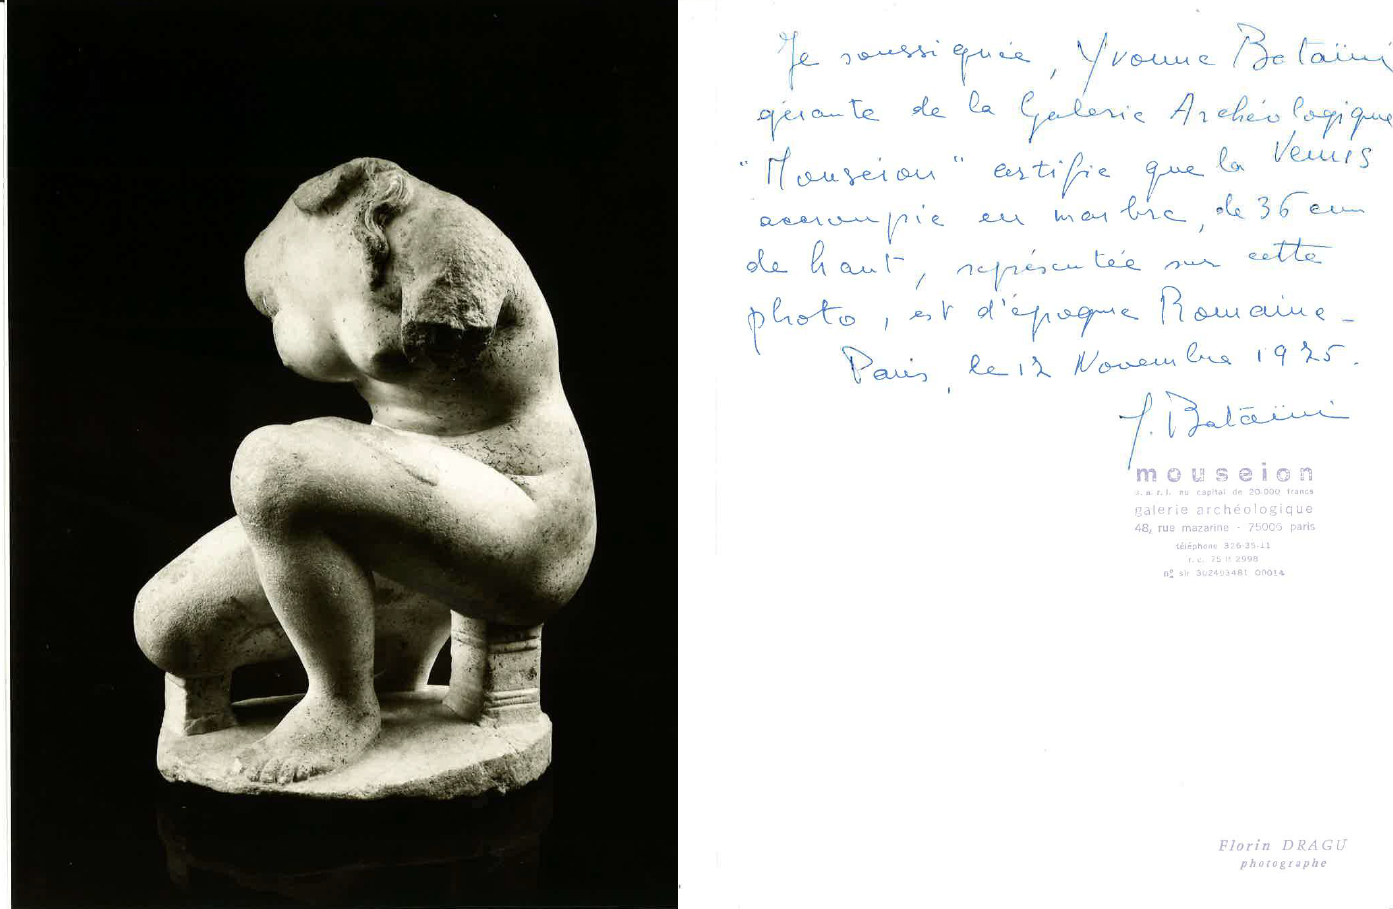 Je soussignée, Yvonne Bataïni
gérante de la Galerie Archéologique
"Mouseion" certifie que la Venus
accroupie en marbre, de 36 cm
de haut, représentée sur cette
photo, est d'époque Romaine -
Paris, le 12 Novembre 1975.
Y. Bataïni
mouseion
s.a.r.l. au capital de 20.000 francs
galerie archéologique
48, rue mazarine - 75006 paris
téléphone 326-35-11
r.c. 75 B 2998
n° sir 302493481 00014
Florin DRAGU
photographe